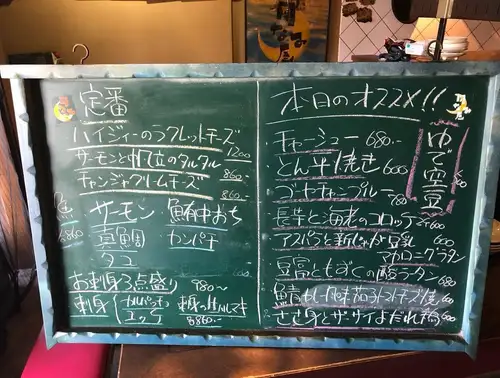 定番
ハイジィーのラクレットチーズ 1200
サーモンと帆立のタルタル 860
チャンジャクリームチーズ 860
魚
各860
サーモン
真鯛
タコ
カンパチ
お刺身3点盛り 980〜
刺身
各860.-
本日のオススメ!!
チャーシュー 680-
とん平焼き 600
ゴーヤチャンプルー 780
長芋と海老のコロッケ 2ケ600
アスパラと新じゃが豆乳マカロニグラタン 600
豆腐ともずくの酸ラータン 680
ささ身とザーサイよだれ
ゆで空豆